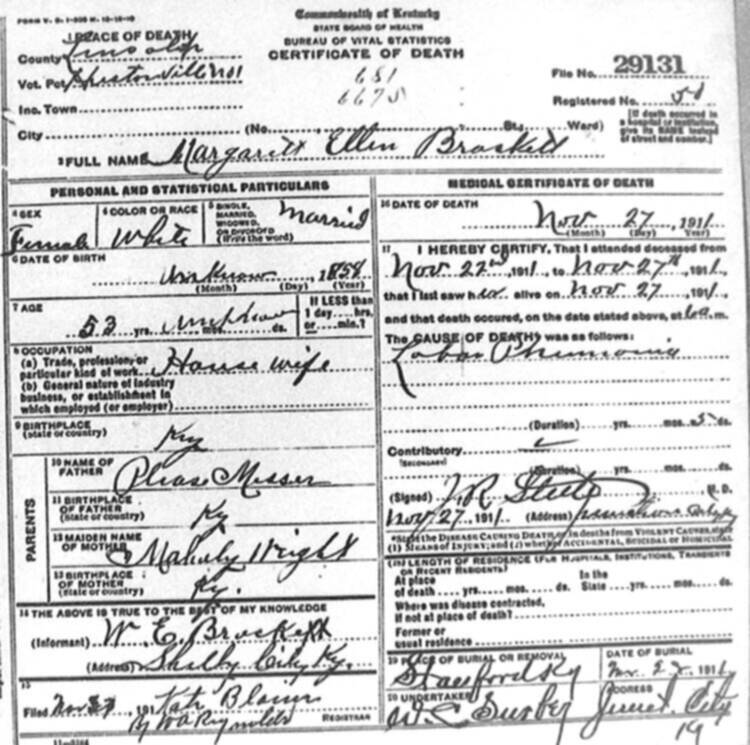 FORM V. S. 1-
Commonwealth of Kentucky
STATE BOARD OF HEALTH
BUREAU OF VITAL STATISTICS
CERTIFICATE OF DEATH
1 PLACE OF DEATH
County Lincoln
Vot. Pct No 1
Inc. Town
City (No. St.; Ward)
681
6675
File No. 29131
Registered No. 51
[If death occurred in a hospital or institution, give its NAME instead of street and number.]
2 FULL NAME Margarett Ellen Braskett
PERSONAL AND STATISTICAL PARTICULARS
3 SEX
Female
4 COLOR OR RACE
White
5 SINGLE, MARRIED, WIDOWED, OR DIVORCED (Write the word)
Married
6 DATE OF BIRTH
Unknown 1858
(Month) (Day) (Year)
7 AGE
53 yrs. mos. ds.
If LESS than 1 day ...hrs. or ...min.?
8 OCCUPATION
(a) Trade, profession, or
particular kind of work House wife
(b) General nature of industry
business, or establishment in
which employed (or employer)
9 BIRTHPLACE
(State or country) Ky
PARENTS
10 NAME OF
FATHER Pleas Messer
11 BIRTHPLACE
OF FATHER
(State or country) Ky
12 MAIDEN NAME
OF MOTHER Mahaly Wright
13 BIRTHPLACE
OF MOTHER
(State or country) Ky.
14 THE ABOVE IS TRUE TO THE BEST OF MY KNOWLEDGE
(Informant) W. E. Braskett
(Address) Shelby City Ky.
15
Filed Nov 27 191 Kate Blain
By W A Reynolds REGISTRAR
MEDICAL CERTIFICATE OF DEATH
16 DATE OF DEATH
Nov 27 1911
(Month) (Day) (Year)
17 I HEREBY CERTIFY, That I attended deceased from
Nov 22nd, 1911, to Nov 27th, 1911,
that I last saw her alive on Nov 27, 1911,
and that death occured, on the date stated above, at 6 a m.
The CAUSE OF DEATH was as follows:
Lobar Pneumonia
(Duration) yrs. mos. 5 ds.
Contributory
(SECONDARY)
(Duration) yrs. mos. ds.
(Signed) J. R. M. D.
Nov 27, 1911 (Address) Junction City Ky
*State the DISEASE CAUSING DEATH, or in deaths from VIOLENT CAUSES, state
(1) MEANS OF INJURY; and (2) whether ACCIDENTAL, SUICIDAL OR HOMICIDAL
18 LENGTH OF RESIDENCE (FOR HOSPITALS, INSTITUTIONS, TRANSIENTS
OR RECENT RESIDENTS)
At place In the
of death yrs. mos. ds. State yrs. mos. ds.
Where was disease contracted,
if not at place of death?
Former or
usual residence
19 PLACE OF BURIAL OR REMOVAL
Stanford Ky
DATE OF BURIAL
1911
20 UNDERTAKER
W C
ADDRESS
Junct. City
Ky